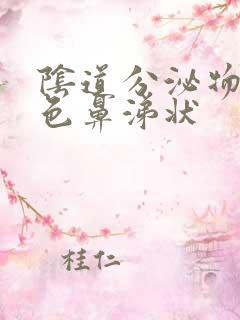 陰道分泌物
色鼻涕狀
桂仁